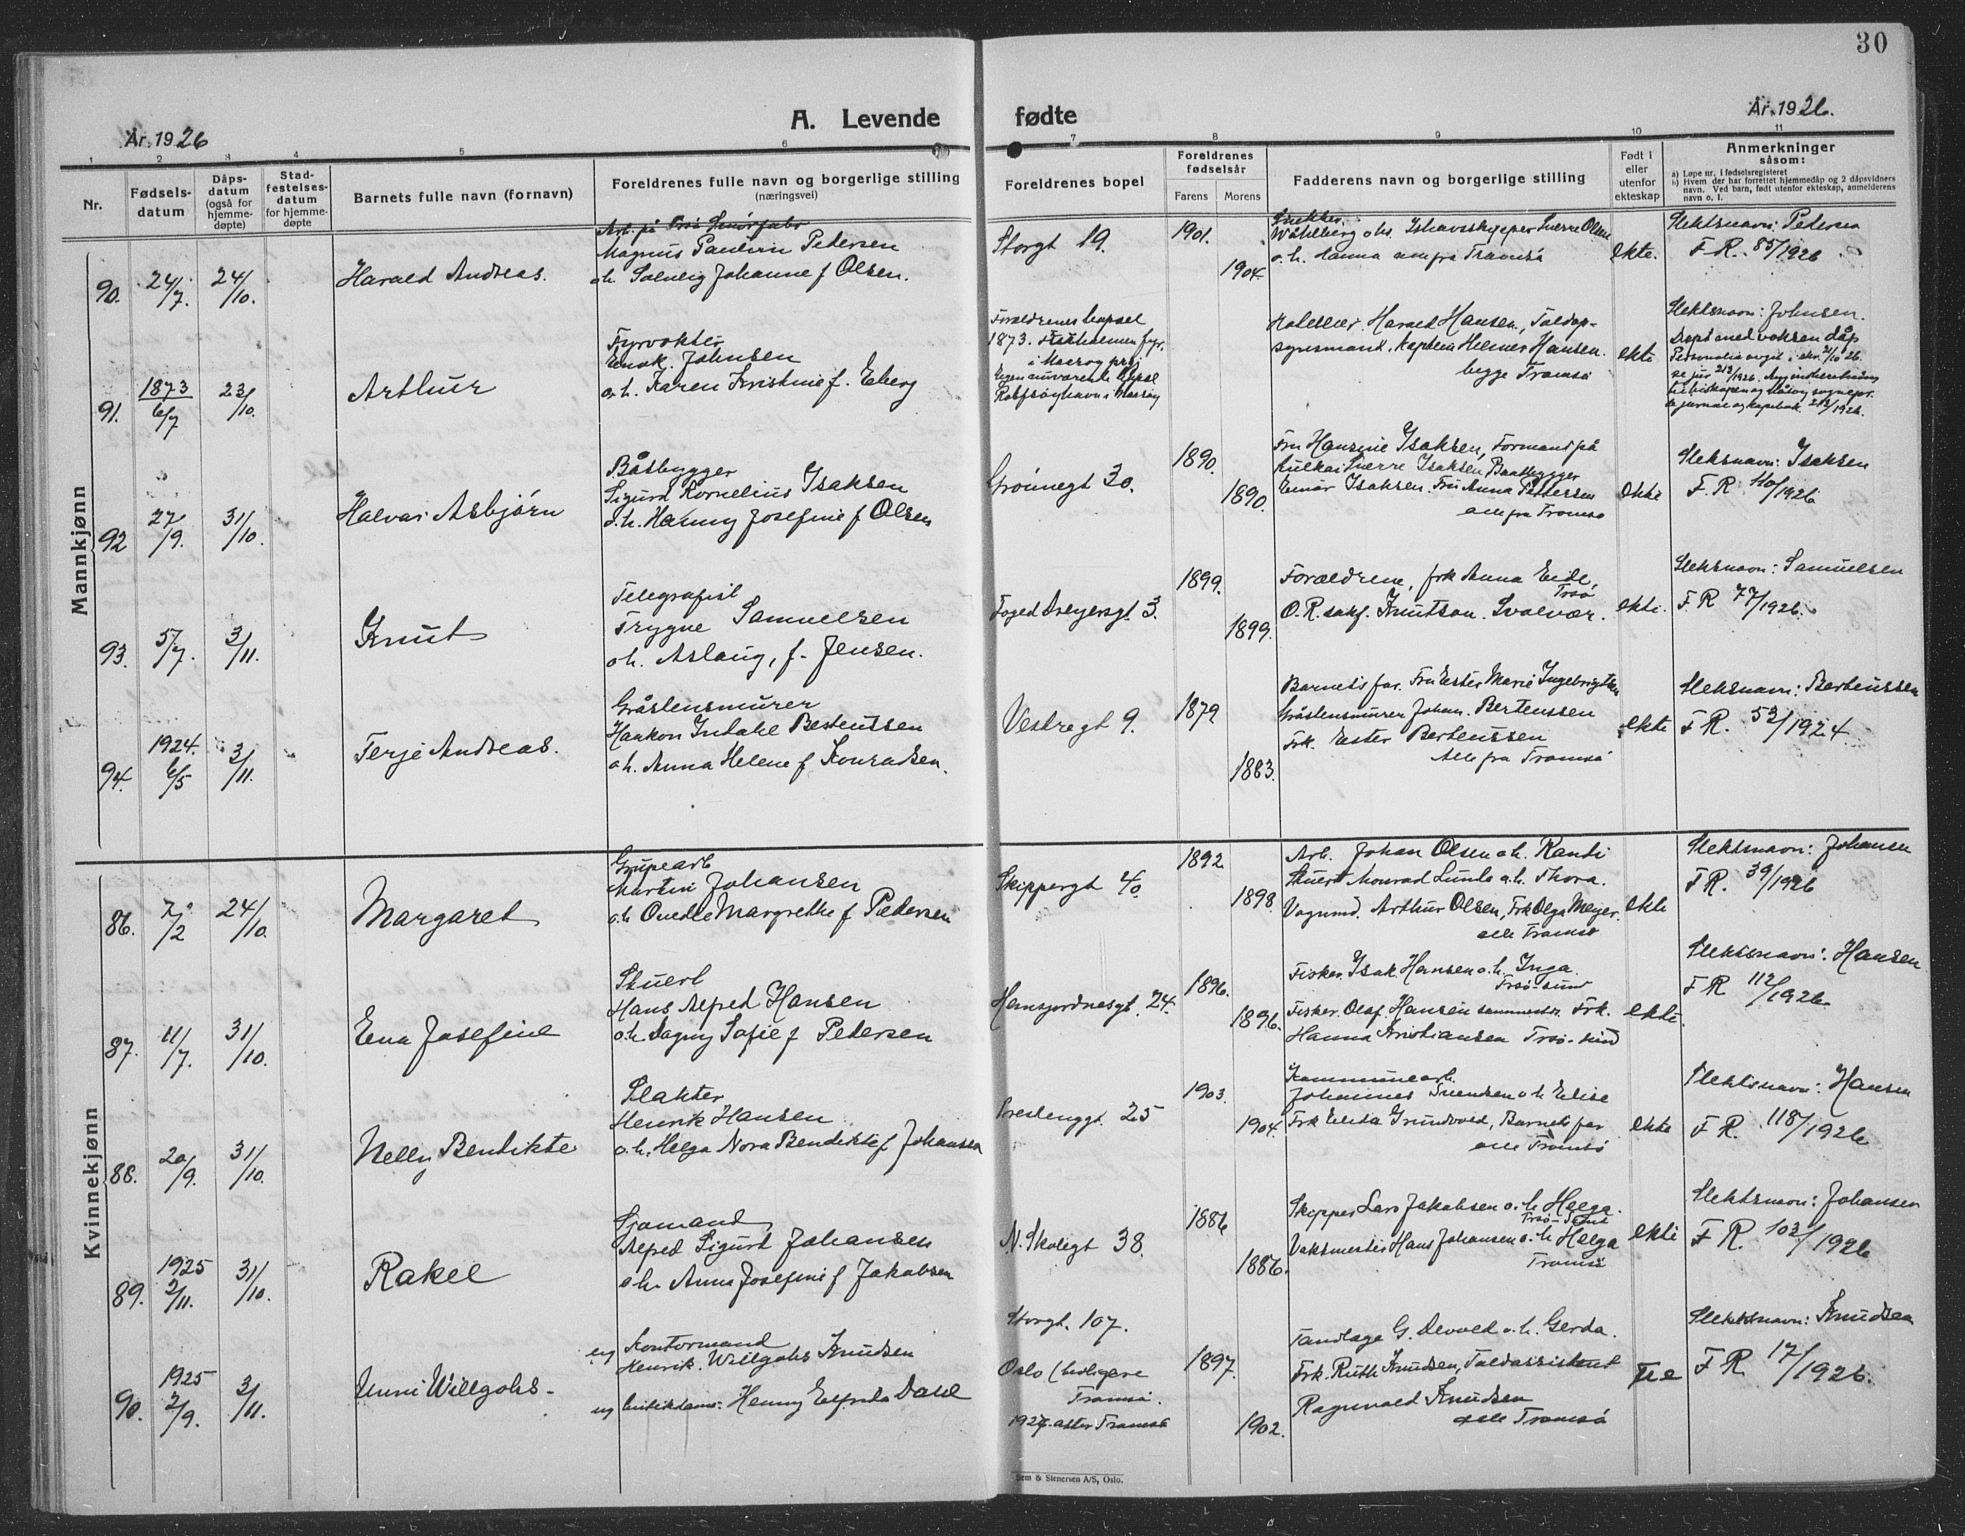 30
A. Levende
fødte
År 1926
År 1926.
1 2 3 4 5 6 7 8 9 10 11
Nr.
Fødsels-
datum
Dåps-
datum
(også for
hjemme-
døpte)
Stad-
festelses-
datum
for hjemme-
døpte
Barnets fulle navn (fornavn)
Foreldrenes fulle navn og borgerlige stilling
(næringsvei)
Foreldrenes bopel
Foreldrenes
fødselsår
Farens Morens
Fadderens navn og borgerlige stilling
Født i
eller
utenfor
ekteskap
Anmerkninger
såsom:
a) Løpe nr. i fødselsregisteret
b) Hvem der har forrettet hjemmedåp og 2 dåpsvidners
navn. Ved barn, født utenfor ekteskap, anmelderens
navn o. l.
Mannkjønn
90. 24/7. 24/10.
Harald Andreas.
Magnus Paulin Pedersen
o.h. Solveig Johanne f Olsen.
Storgt 19.
1901.
1904.
Wahlberg o.h. Ishavsskipper Sverre Olsen
o.h. Hanna alle fra Tromsø
ekte.
Slektsnavn: Petersen
F. R. 85/1926
91. 1873 6/7 23/10.
Arthur
Fyrvokter
Enok Johnsen
o.h. Karen Kristine f. Eberg
Forældrenes bopæl
1873. Fruholmen fyr.
i Maasøy prj.
Egen nuværende bopæl
Rolfsøyhavn i Maasøy
Hotelleier Harald Hansen, Toldop-
synsmand, Kaptein Helmer Hansen.
begge Tromsø
ekte
Slektsnavn: Johnsen.
Døpt med voksen dåp
92 27/9. 31/10.
Halvar Asbjørn
Båtbygger
Sigurd Kornelius Isaksen
o.h. Hanny Josefine f Olsen
Grønnegt 30.
1890.
1890.
Fru Hansine Isaksen, Formand på
Kulkai Sverre Isaksen, Baatbygger
Einar Isaksen. Fru Anna Pettersen
alle fra Tromsø
ekte
Slektsnavn: Isaksen
F. R. 110/1926
93. 5/7. 3/11.
Knut
Telegrafist
Trygve Samuelsen
o.h. Aslaug, f. Jensen.
Foged Dreyersgt 3.
1899.
1899.
Forældrene, frk Anna Eide,
Tromsø
O. R. sakf. Knutson. Svolvær.
ekte.
Slektsnavn: Samuelsen
F. R 77/1926.
94. 1924. 6/5 3/11.
Terje Andreas.
Gråstensmurer
Haakon Indahl Bertenssen
o.h. Anna Helene f Konradsen.
Vestregt 9.
1879
1883.
Barnets far. Fru Ester Marie Ingebrigtsen
Gråstensmurer Johan. Bertenssen
Frk. Ester Bertenssen
Alle fra Tromsø
ekte
Slektsnavn: Bertenssen
F R. 53/1924
Kvinnekjønn
86. 7/2 24/10.
Margaret
Grupearb
Martin Johansen
o.h Ovedle Margrethe f Pedersen
Skippergt 40
1892
1898
Arb. Johan Olsen o.h. Randi
Stuert Monrad Lund o.h. Thora.
Vognmd. Arthur Olsen, Frk Olga Meyer.
alle Tromsø
ekte
Slektsnavn: Johansen
F R. 39/1926
87. 11/7. 31/10.
Ena Josefine
Stuert
Hans Alfred Hansen
o.h Dagny Sofie f Petersen
Hansjordnesgt. 24.
1896.
1896.
Fisker Isak Hansen o.h. Inga.
Tromsø-sund
Fisker Olaf Hansen sammested. Frk.
Hanna Kristiansen Tromsø-sund
ekte.
Slektsnavn: Hansen
F R 112/1926.
88. 20/9. 31/10.
Nelly Bendikte
Slakter
Henrik Hansen
o.h. Helga Nora Bendikte f Johansen
Prestenggt. 25
1903.
1904.
Kommunearb.
Johannes Svendsen o.h Elise
Frk Elida Grundvold, Barnets far
alle Tromsø
ekte
Slektsnavn: Hansen
F R. 118/1926
89. 1925 2/11. 31/10.
Rakel
Sjømand
Alfred Sigurd Johansen
o.h. Anna Josefine f Jakobsen
N. Skolegt 38.
1886
1886.
Skipper Lars Jakobsen o.h Helga.
Tromsø-sund
Vaktmester Hans Johansen o.h Helga
Tromsø
ekte
Slektsnavn: Johansen
F R. 102/1926
90. 1925 2/9. 3/11.
Unni Willgohs.
ug Kontormand
Henrik Willgohs Knudsen
ug butikdame: Henny Elfrida Dahl
Storgt. 107.
Oslo (tidligere
Tromsø.
1927. atter Tromsø
1897.
1902.
Tandlæge G. Devold o.h. Gerda.
Frk. Ruth Knudsen, Toldassistent
Ragnvald Knudsen
alle Tromsø
Slektsnavn: Knudsen
F R 17/1926.
Sem & Stenersen A/S, Oslo.